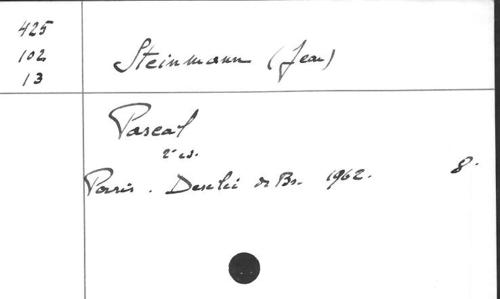 425
102
13
Steinmann (Jean)
Pascal
2e éd.
Paris. Desclée de Br. 1962. 8.